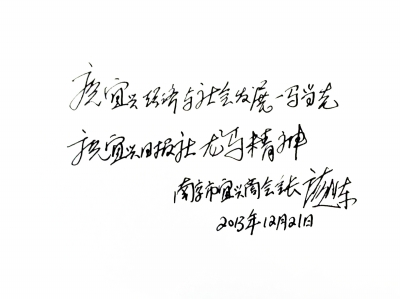 祝宜兴经济与社会发展一马当先
祝宜兴日报社龙马精神
南京市宜兴商会会长
2013年12月21日